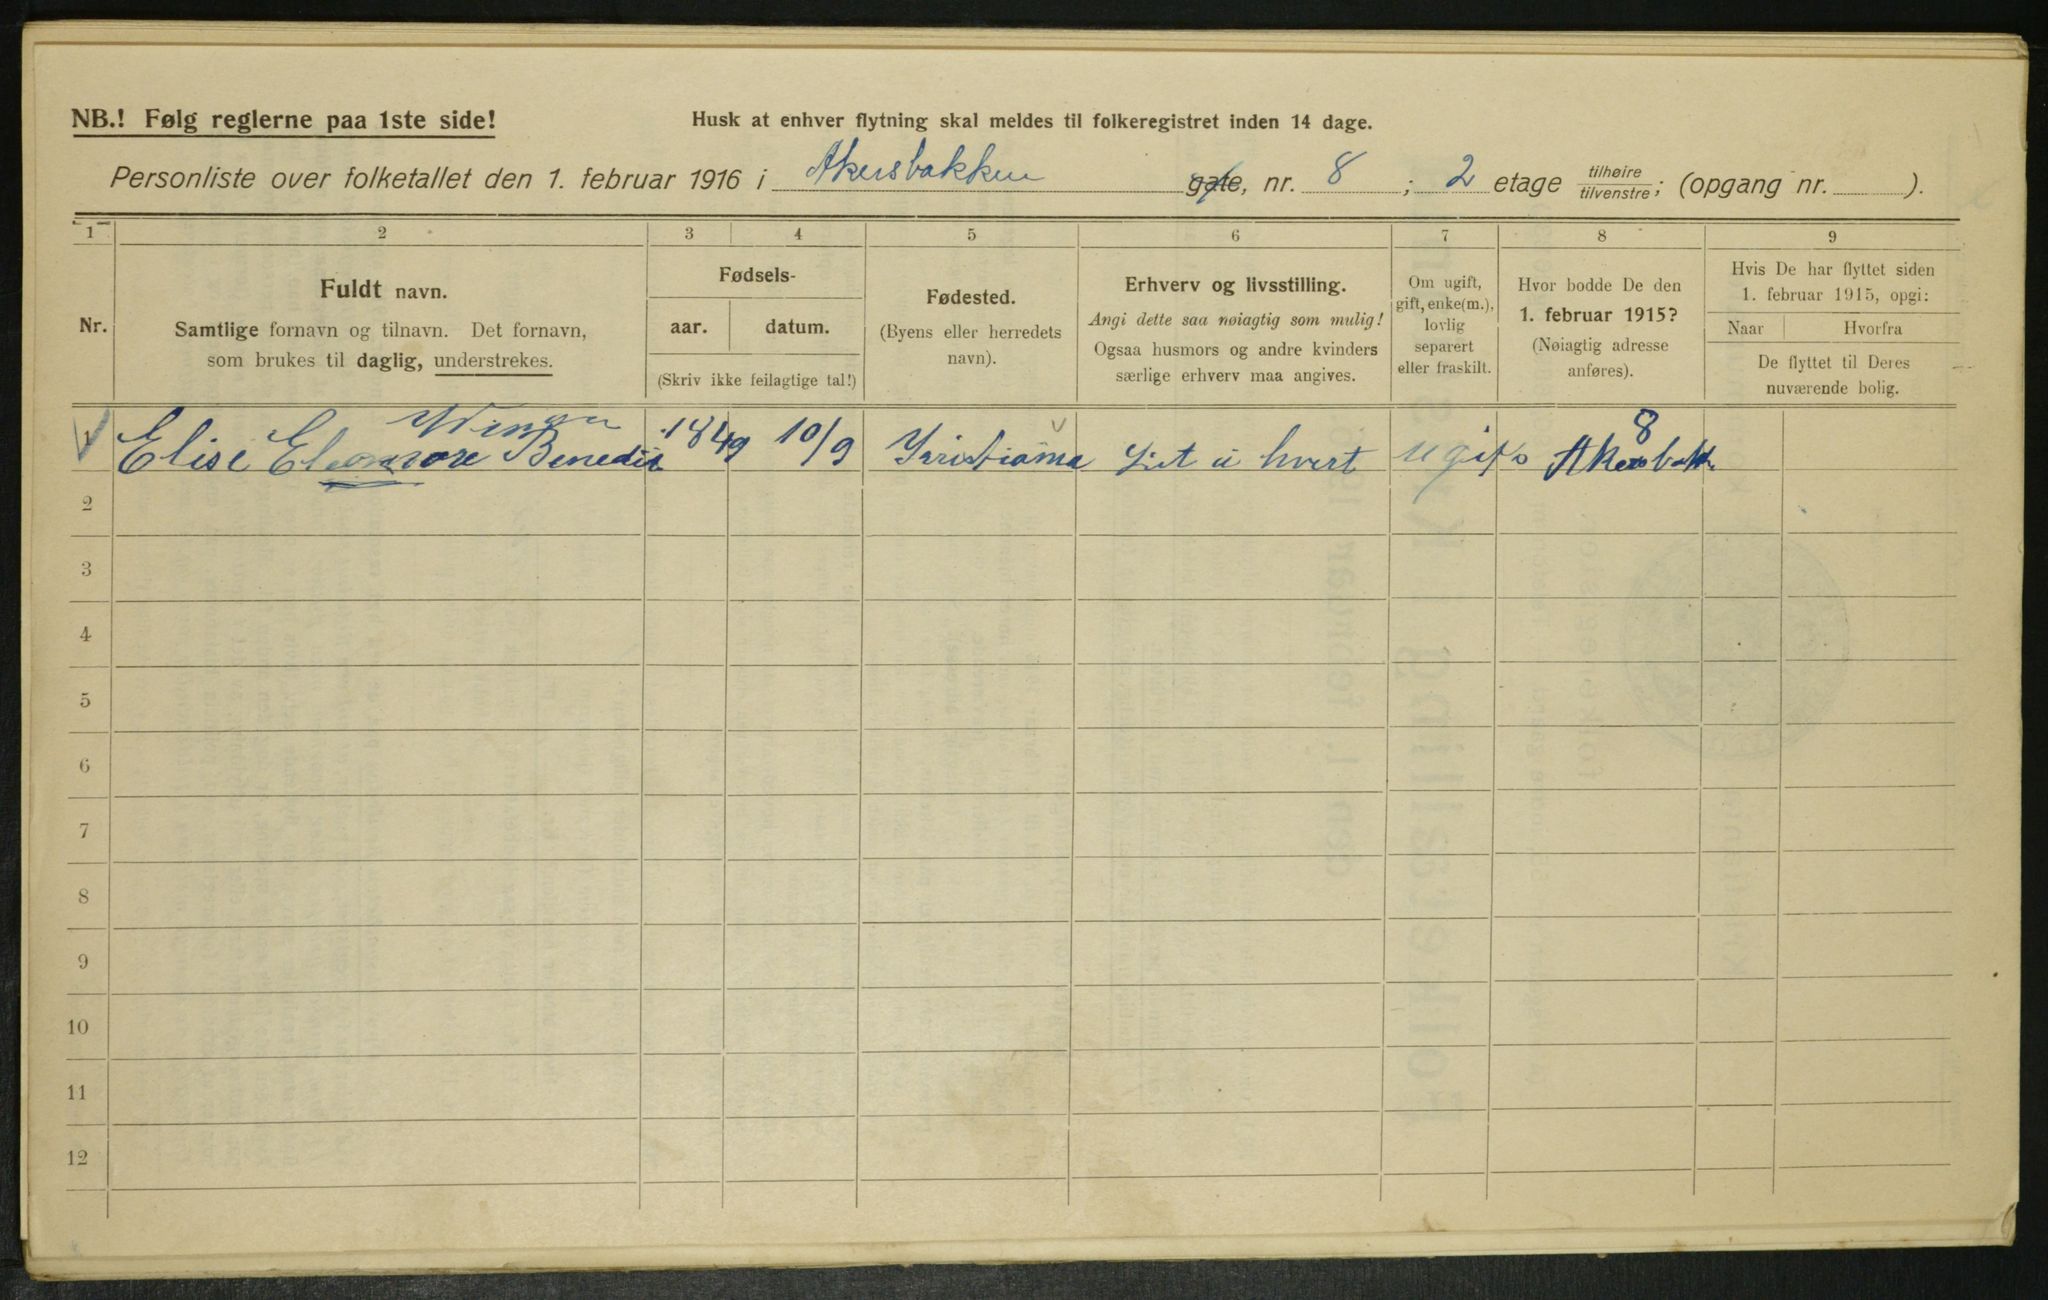 NB.! Følg reglerne paa 1ste side!
Husk at enhver flytning skal meldes til folkeregistret inden 14 dage.
Personliste over folketallet den 1. februar 1916 i Akersbakken gate, nr. 8 ; 2 etage tilhøire tilvenstre; (opgang nr. ).
1 2 3 4 5 6 7 8 9
Nr.
Fuldt navn.
Samtlige fornavn og tilnavn. Det fornavn,
som brukes til daglig, understrekes.
Fødsels-
aar. datum.
(Skriv ikke feilagtige tal!)
Fødested.
(Byens eller herredets
navn).
Erhverv og livsstilling.
Angi dette saa nøiagtig som mulig!
Ogsaa husmors og andre kvinders
særlige erhverv maa angives.
Om ugift,
gift, enke(m.),
lovlig
separert
eller fraskilt.
Hvor bodde De den
1. februar 1915?
(Nøiagtig adresse
anføres).
Hvis De har flyttet siden
1. februar 1915, opgi:
Naar Hvorfra
De flyttet til Deres
nuværende bolig.
1 Elise Eleonore Benedik 1849 10/9 Kristiania Lit u hvert ugift 8 Akersbakk
2
3
4
5
6
7
8
9
10
11
12